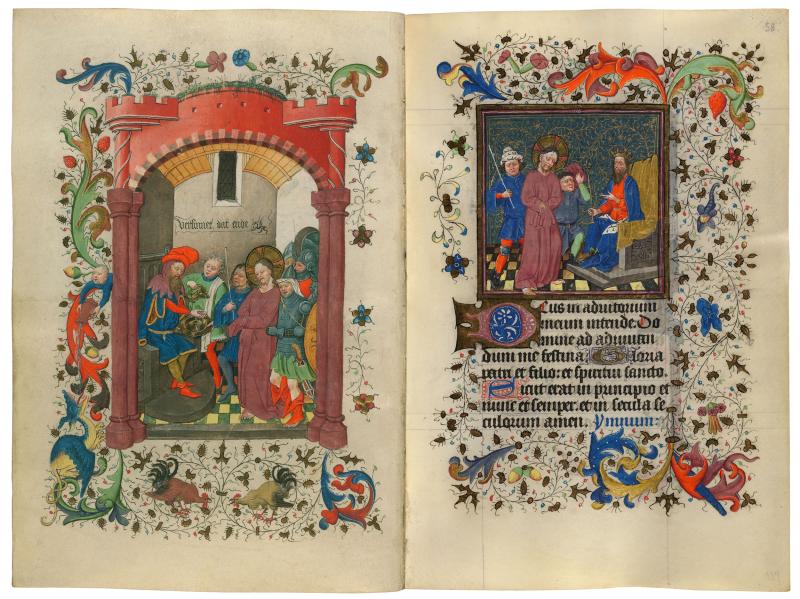 versinnet dat ende
58
Deus in adiutorium
meum intende. Do
mine ad adiuuan
dum me festina Gloria
patri et filio: et spiritui sancto.
Sicut erat in principio et
nunc et semper. et in secula se
culorum amen. Ymnum: